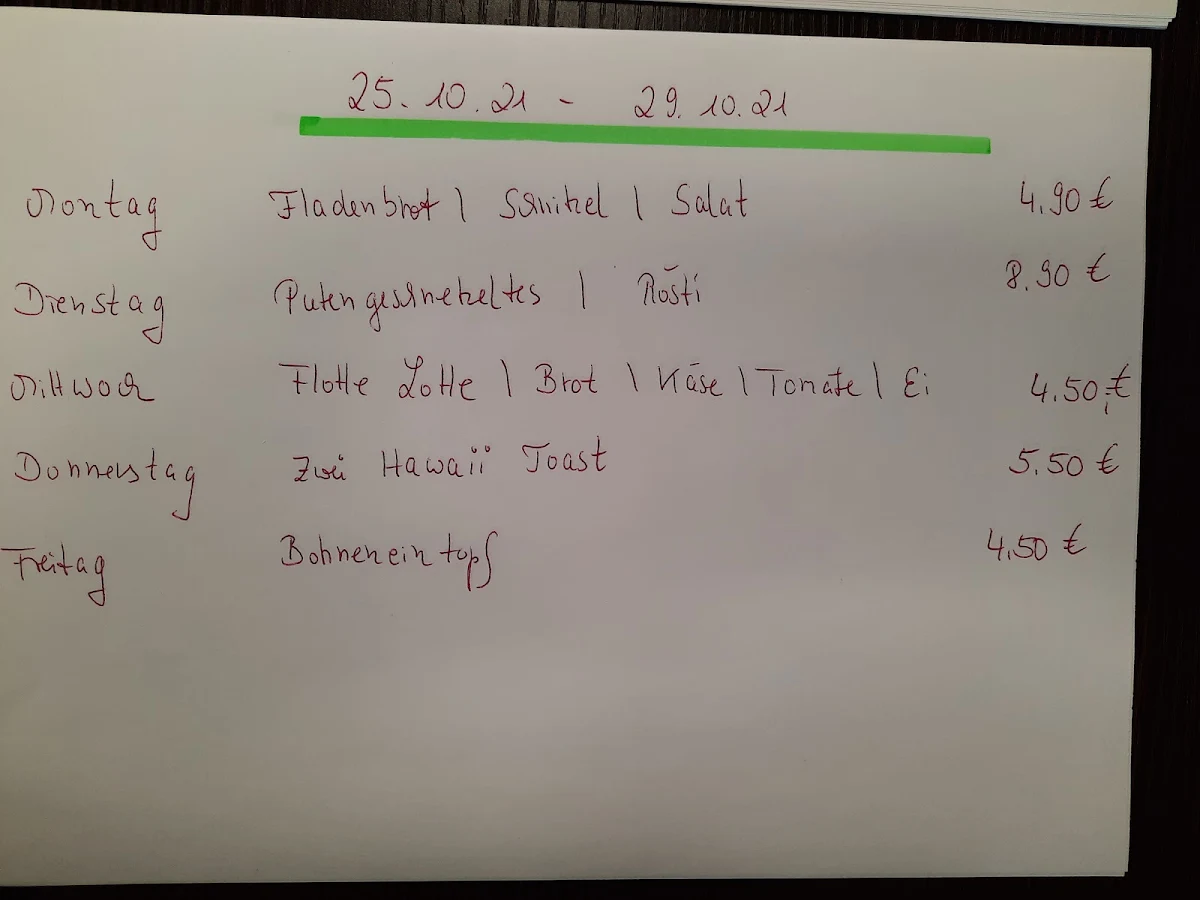 25.10.21 - 29.10.21
Montag Fladenbrot | Schnitzel | Salat 4.90 €
Dienstag Putengeschnetzeltes | Rösti 8.90 €
Mittwoch Flotte Lotte | Brot | Käse | Tomate | Ei 4.50 €
Donnerstag Zwei Hawaii Toast 5.50 €
Freitag Bohneneintopf 4.50 €